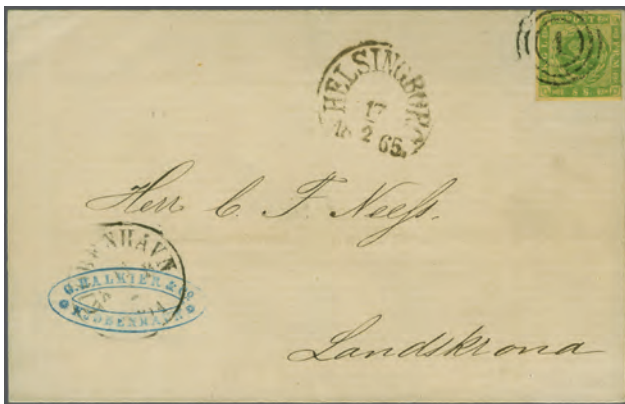 1
HELSINGBORG
17
18 2 65.
Herr C. F. Neess.
KØBENHAVN
G. HALKIER & Co
KJØBENHAVN
Landskrona